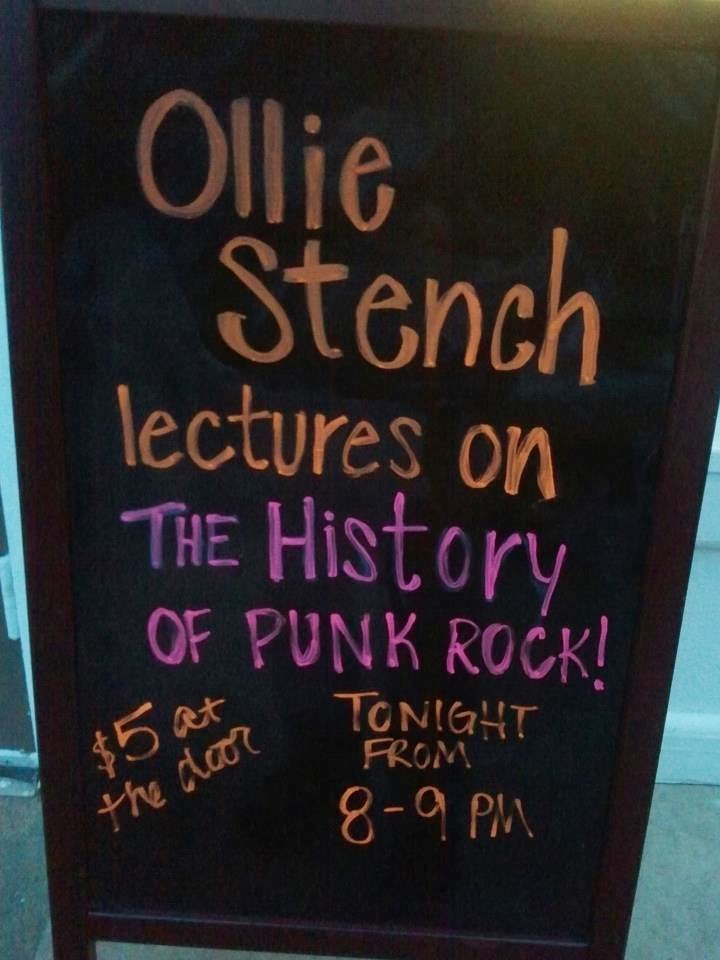 Ollie
Stench
lectures on
THE History
OF PUNK ROCK!
$5 at
the door
TONIGHT
FROM
8-9 PM